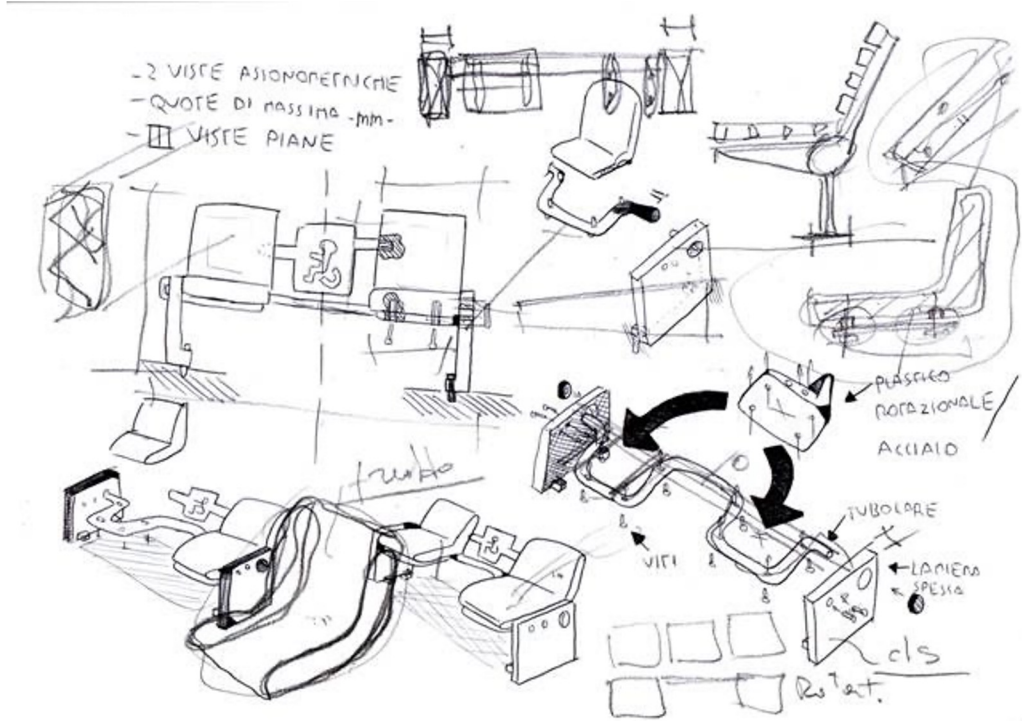 - 2 VISTE ASSIONOMETRICHE
- QUOTE DI MASSIMA -mm-
- III VISTE PIANE
PLASTICO
ROTAZIONALE /
ACCIAIO
TUBOLARE
VITI
LAMIERA
SPESSA
cls